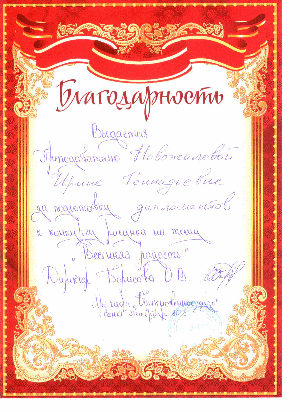 Благодарность
Выдается
Преподавателю Новожиловой
Ирине Геннадьевне
за подготовку дипломантов
к конкурсу рисунков на тему
"Весенняя радость"
Директор Борисова О.В.